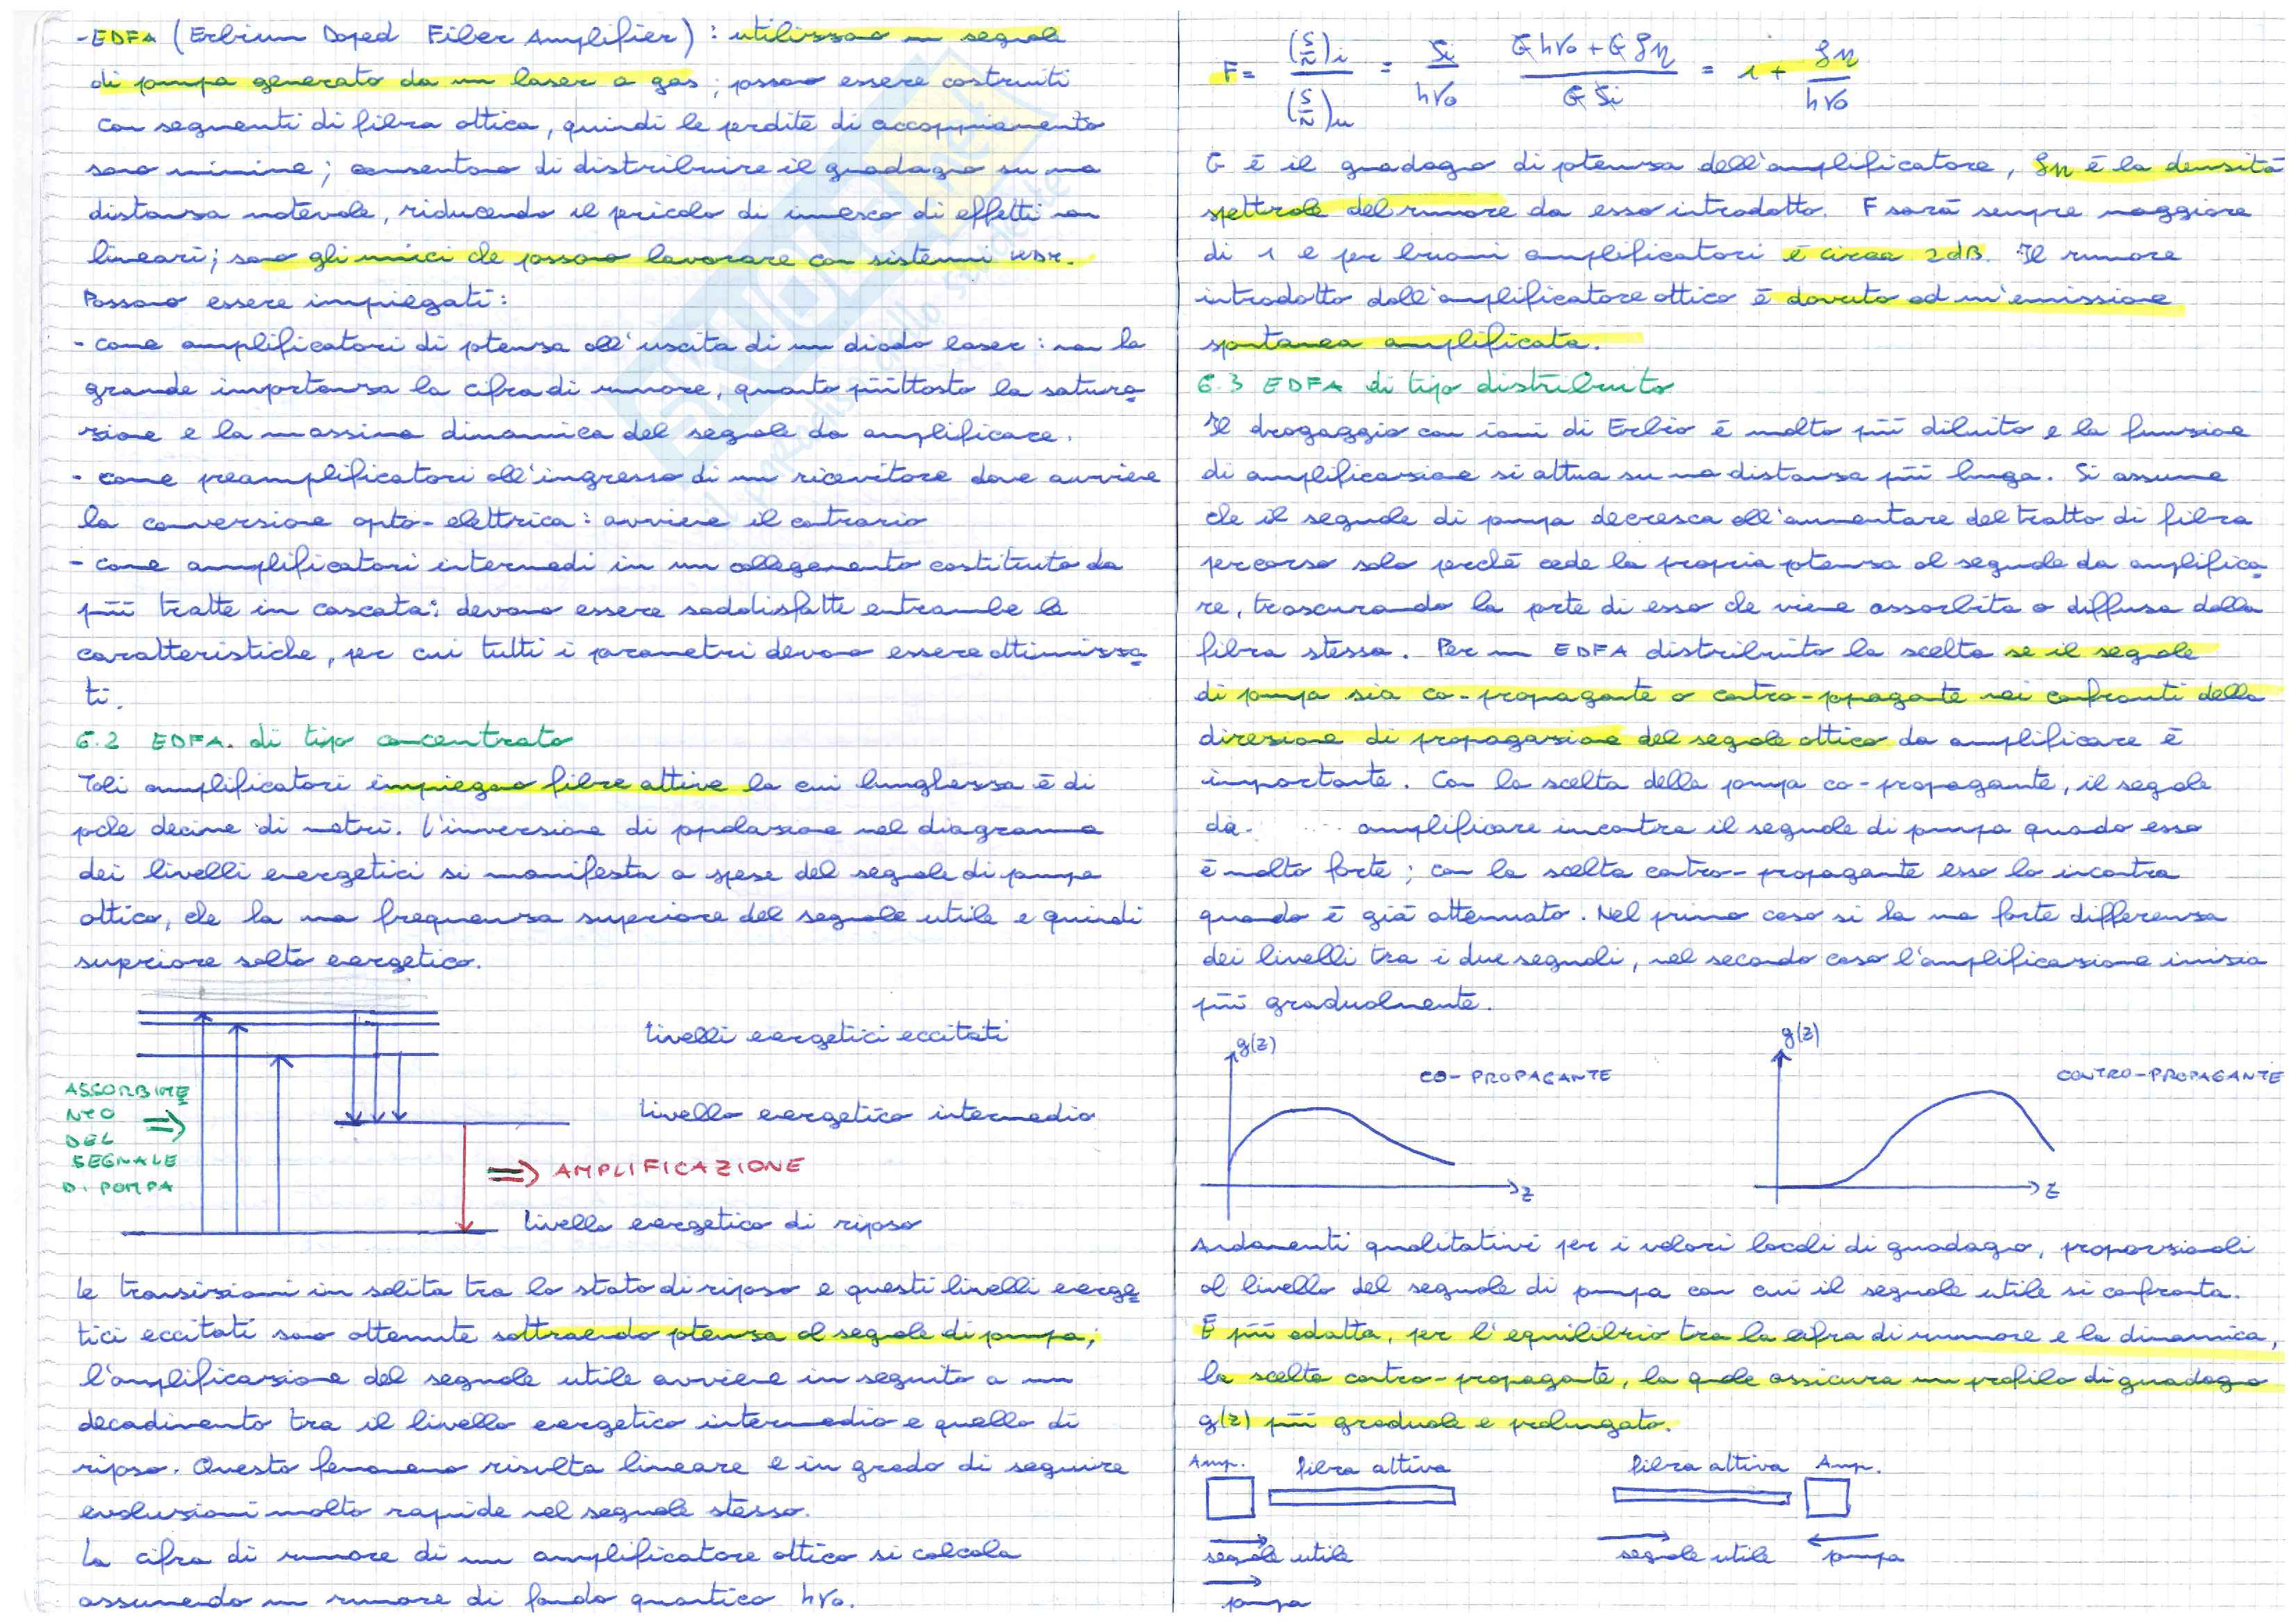 - EDFA (Erbium Doped Fiber Amplifier) : utilizzano un segnale
di pompa generato da un laser a gas; possono essere costruiti
con segmenti di fibra ottica, quindi le perdite di accoppiamento
sono minime; consentono di distribuire il guadagno su una
distanza notevole, riducendo il pericolo di innesco di effetti non
lineari; sono gli unici che possono lavorare con sistemi WDM.
Possono essere impiegati:
- come amplificatori di potenza all'uscita di un diodo laser: non ha
grande importanza la cifra di rumore, quanto piùttosto la satura
zione e la massima dinamica del segnale da amplificare.
- come preamplificatori all'ingresso di un ricevitore dove avviene
la conversione opto-elettrica: avviene il contrario
- come amplificatori intermedi in un collegamento costituito da
più tratte in cascata: devono essere soddisfatte entrambe le
caratteristiche, per cui tutti i parametri devono essere ottimizza
ti.
6.2 EDFA. di tipo concentrato
Tali amplificatori impiegano fibre attive la cui lunghezza è di
poche decine di metri. L'inversione di popolazione nel diagramma
dei livelli energetici si manifesta a spese del segnale di pompa
ottico, che ha una frequenza superiore del segnale utile e quindi
superiore salto energetico.
livelli energetici eccitati
ASSORBIME
NTO
DEL
SEGNALE
DI POMPA
livello energetico intermedio
=> AMPLIFICAZIONE
livello energetico di riposo
Le transizioni in salita tra lo stato di riposo e questi livelli energe
tici eccitati sono ottenute sottraendo potenza al segnale di pompa;
l'amplificazione del segnale utile avviene in seguito a un
decadimento tra il livello energetico intermedio e quello di
riposo. Questo fenomeno risulta lineare e in grado di seguire
evoluzioni molto rapide nel segnale stesso.
La cifra di rumore di un amplificatore ottico si calcola
assumendo un rumore di fondo quantico hν₀.
F = (S/N)i / (S/N)u = Si / hν₀ · (G hν₀ + G ʃn) / (G Si) = 1 + ʃn / hν₀
G è il guadagno di potenza dell'amplificatore, ʃn è la densità
spettrale del rumore da esso introdotto. F sarà sempre maggiore
di 1 e per buoni amplificatori è circa 2dB. Il rumore
introdotto dall'amplificatore ottico è dovuto ad un'emissione
spontanea amplificata.
6.3 EDFA di tipo distribuito
Il drogaggio con ioni di Erbio è molto più diluito e la funzione
di amplificazione si attua su una distanza più lunga. Si assume
che il segnale di pompa decresca all'aumentare del tratto di fibra
percorso solo perchè cede la propria potenza al segnale da amplifica
re, trascurando la parte di esso che viene assorbita o diffusa dalla
fibra stessa. Per un EDFA distribuito la scelta se il segnale
di pompa sia co-propagante o contro-propagante nei confronti della
direzione di propagazione del segnale ottico da amplificare è
importante. Con la scelta della pompa co-propagante, il segnale
da amplificare incontra il segnale di pompa quando esso
è molto forte; con la scelta contro-propagante esso lo incontra
quando è già attenuato. Nel primo caso si ha una forte differenza
dei livelli tra i due segnali, nel secondo caso l'amplificazione inizia
più gradualmente.
g(z)
CO-PROPAGANTE
z
g(z)
CONTRO-PROPAGANTE
z
Andamenti qualitativi per i valori locali di guadagno, proporzionali
al livello del segnale di pompa con cui il segnale utile si confronta.
È più adatta, per l'equilibrio tra la cifra di rumore e la dinamica,
la scelta contro-propagante, la quale assicura un profilo di guadagno
g(z) più graduale e prolungato.
Amp. fibra attiva
segnale utile
pompa
fibra attiva Amp.
segnale utile pompa